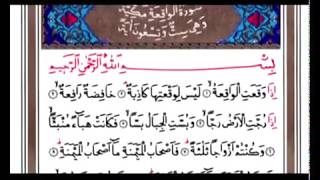 سورة الواقعة مكية
وهي ست وتسعون آية
بِسْمِ اللَّهِ الرَّحْمَٰنِ الرَّحِيمِ
إِذَا وَقَعَتِ الْوَاقِعَةُ ۝ لَيْسَ لِوَقْعَتِهَا كَاذِبَةٌ ۝ خَافِضَةٌ رَافِعَةٌ ۝
إِذَا رُجَّتِ الْأَرْضُ رَجًّا ۝ وَبُسَّتِ الْجِبَالُ بَسًّا ۝ فَكَانَتْ هَبَاءً مُنْبَثًّا ۝
وَكُنْتُمْ أَزْوَاجًا ثَلَاثَةً ۝ فَأَصْحَابُ الْمَيْمَنَةِ مَا أَصْحَابُ الْمَيْمَنَةِ ۝